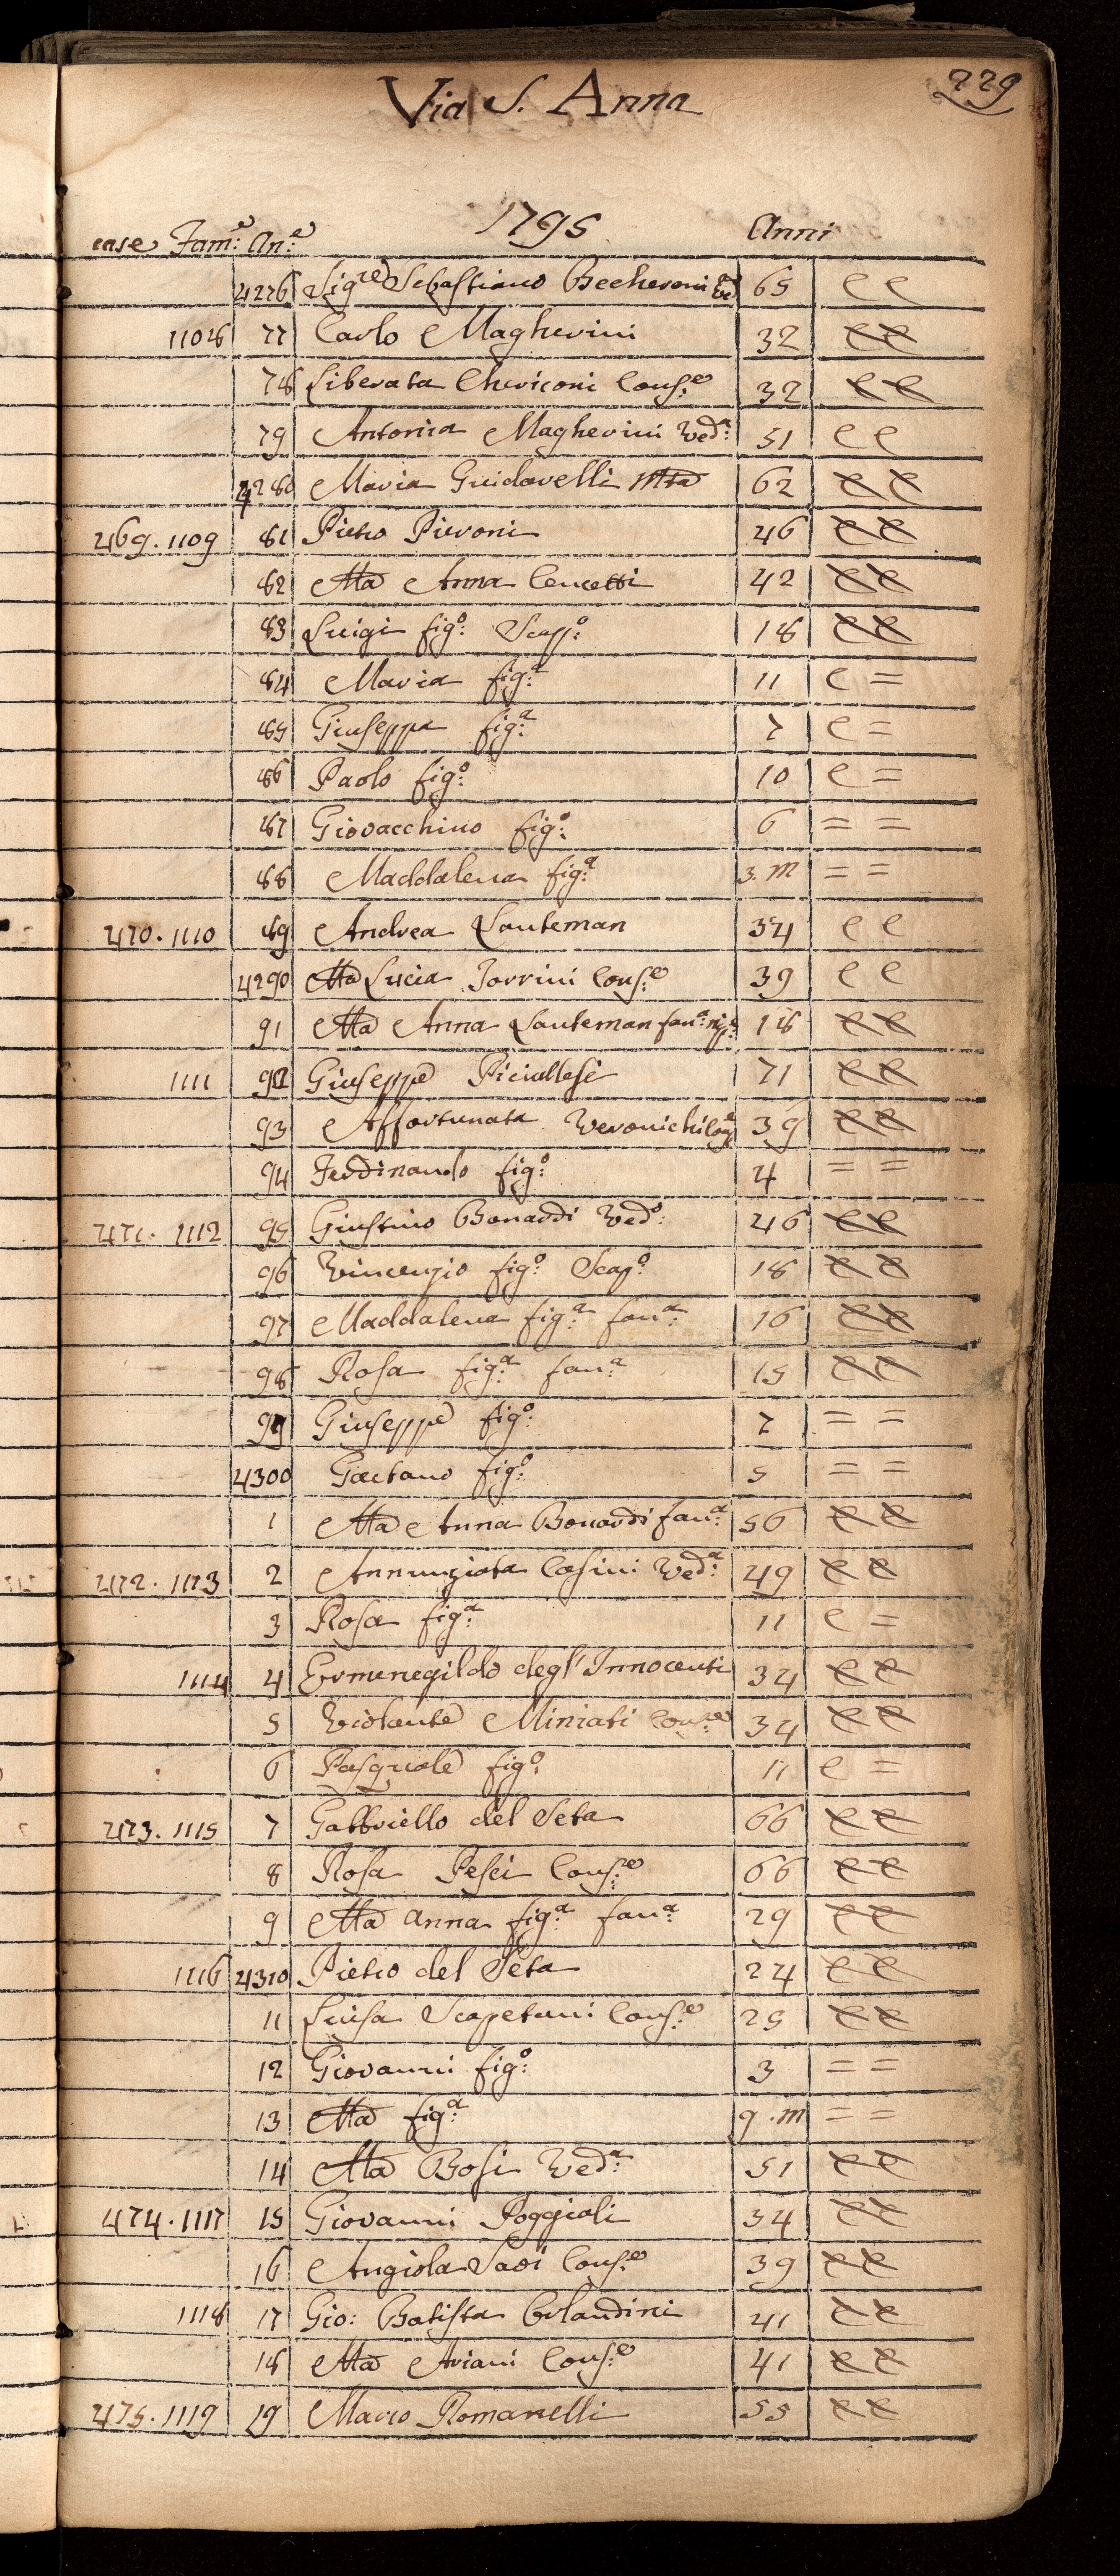 229
Via S. Anna
1795
case Fam.e An.e Anni
4276 Sig.re Sebastiano Becheroni 65 C C
1108 77 Carlo Magherini 32 C C
78 Liberata Chericoni Cons.e 32 C C
79 Antonia Magherini Ved.a 51 C C
4280 Maria Guidarelli 62 C C
469. 1109 81 Pietro Pieroni 46 C C
82 Ma Anna Cencetti 42 C C
83 Luigi fig.o Scap.o 18 C C
84 Maria fig.a 11 C =
85 Giuseppa fig.a 7 C =
86 Paolo fig.o 10 C =
87 Giovacchino fig.o 6 = =
88 Maddalena fig.a 3. m = =
470. 1110 89 Andrea Lauteman 34 C C
4290 Ma Lucia Torrini Cons.e 39 C C
91 Ma Anna Lauteman fan.a 18 C C
1111 92 Giuseppe Piciullesi 71 C C
93 Affortunata Veronichi 39 C C
94 Ferdinando fig.o 4 = =
471. 1112 95 Giustino Bonardi Ved.o 46 C C
96 Vincenzio fig.o Scap.o 18 C C
97 Maddalena fig.a fan.a 16 C C
98 Rosa fig.a fan.a 15 C C
99 Giuseppe fig.o 7 = =
4300 Gaetano fig.o 5 = =
1 Ma Anna Bonardi fan.a 56 C C
472. 1113 2 Annunziata Casini Ved.a 49 C C
3 Rosa fig.a 11 C =
1114 4 Ermenegildo degl' Innocenti 34 C C
5 Violante Miniati Cons.e 34 C C
6 Pasquale fig.o 11 C =
473. 1115 7 Gabbriello del Seta 66 C C
8 Rosa Pesci Cons.e 66 C C
9 Ma Anna fig.a fan.a 29 C C
1116 4310 Pietro del Seta 24 C C
11 Luisa Scapetani Cons.e 25 C C
12 Giovanni fig.o 3 = =
13 Ma fig.a 9. m = =
14 Ma Bosi Ved.a 51 C C
474. 1117 15 Giovanni Poggioli 34 C C
16 Angiola Cons.e 39 C C
1118 17 Gio: Batista Orlandini 41 C C
18 Ma Ariani Cons.e 41 C C
475. 1119 19 Marco Romanelli 55 C C